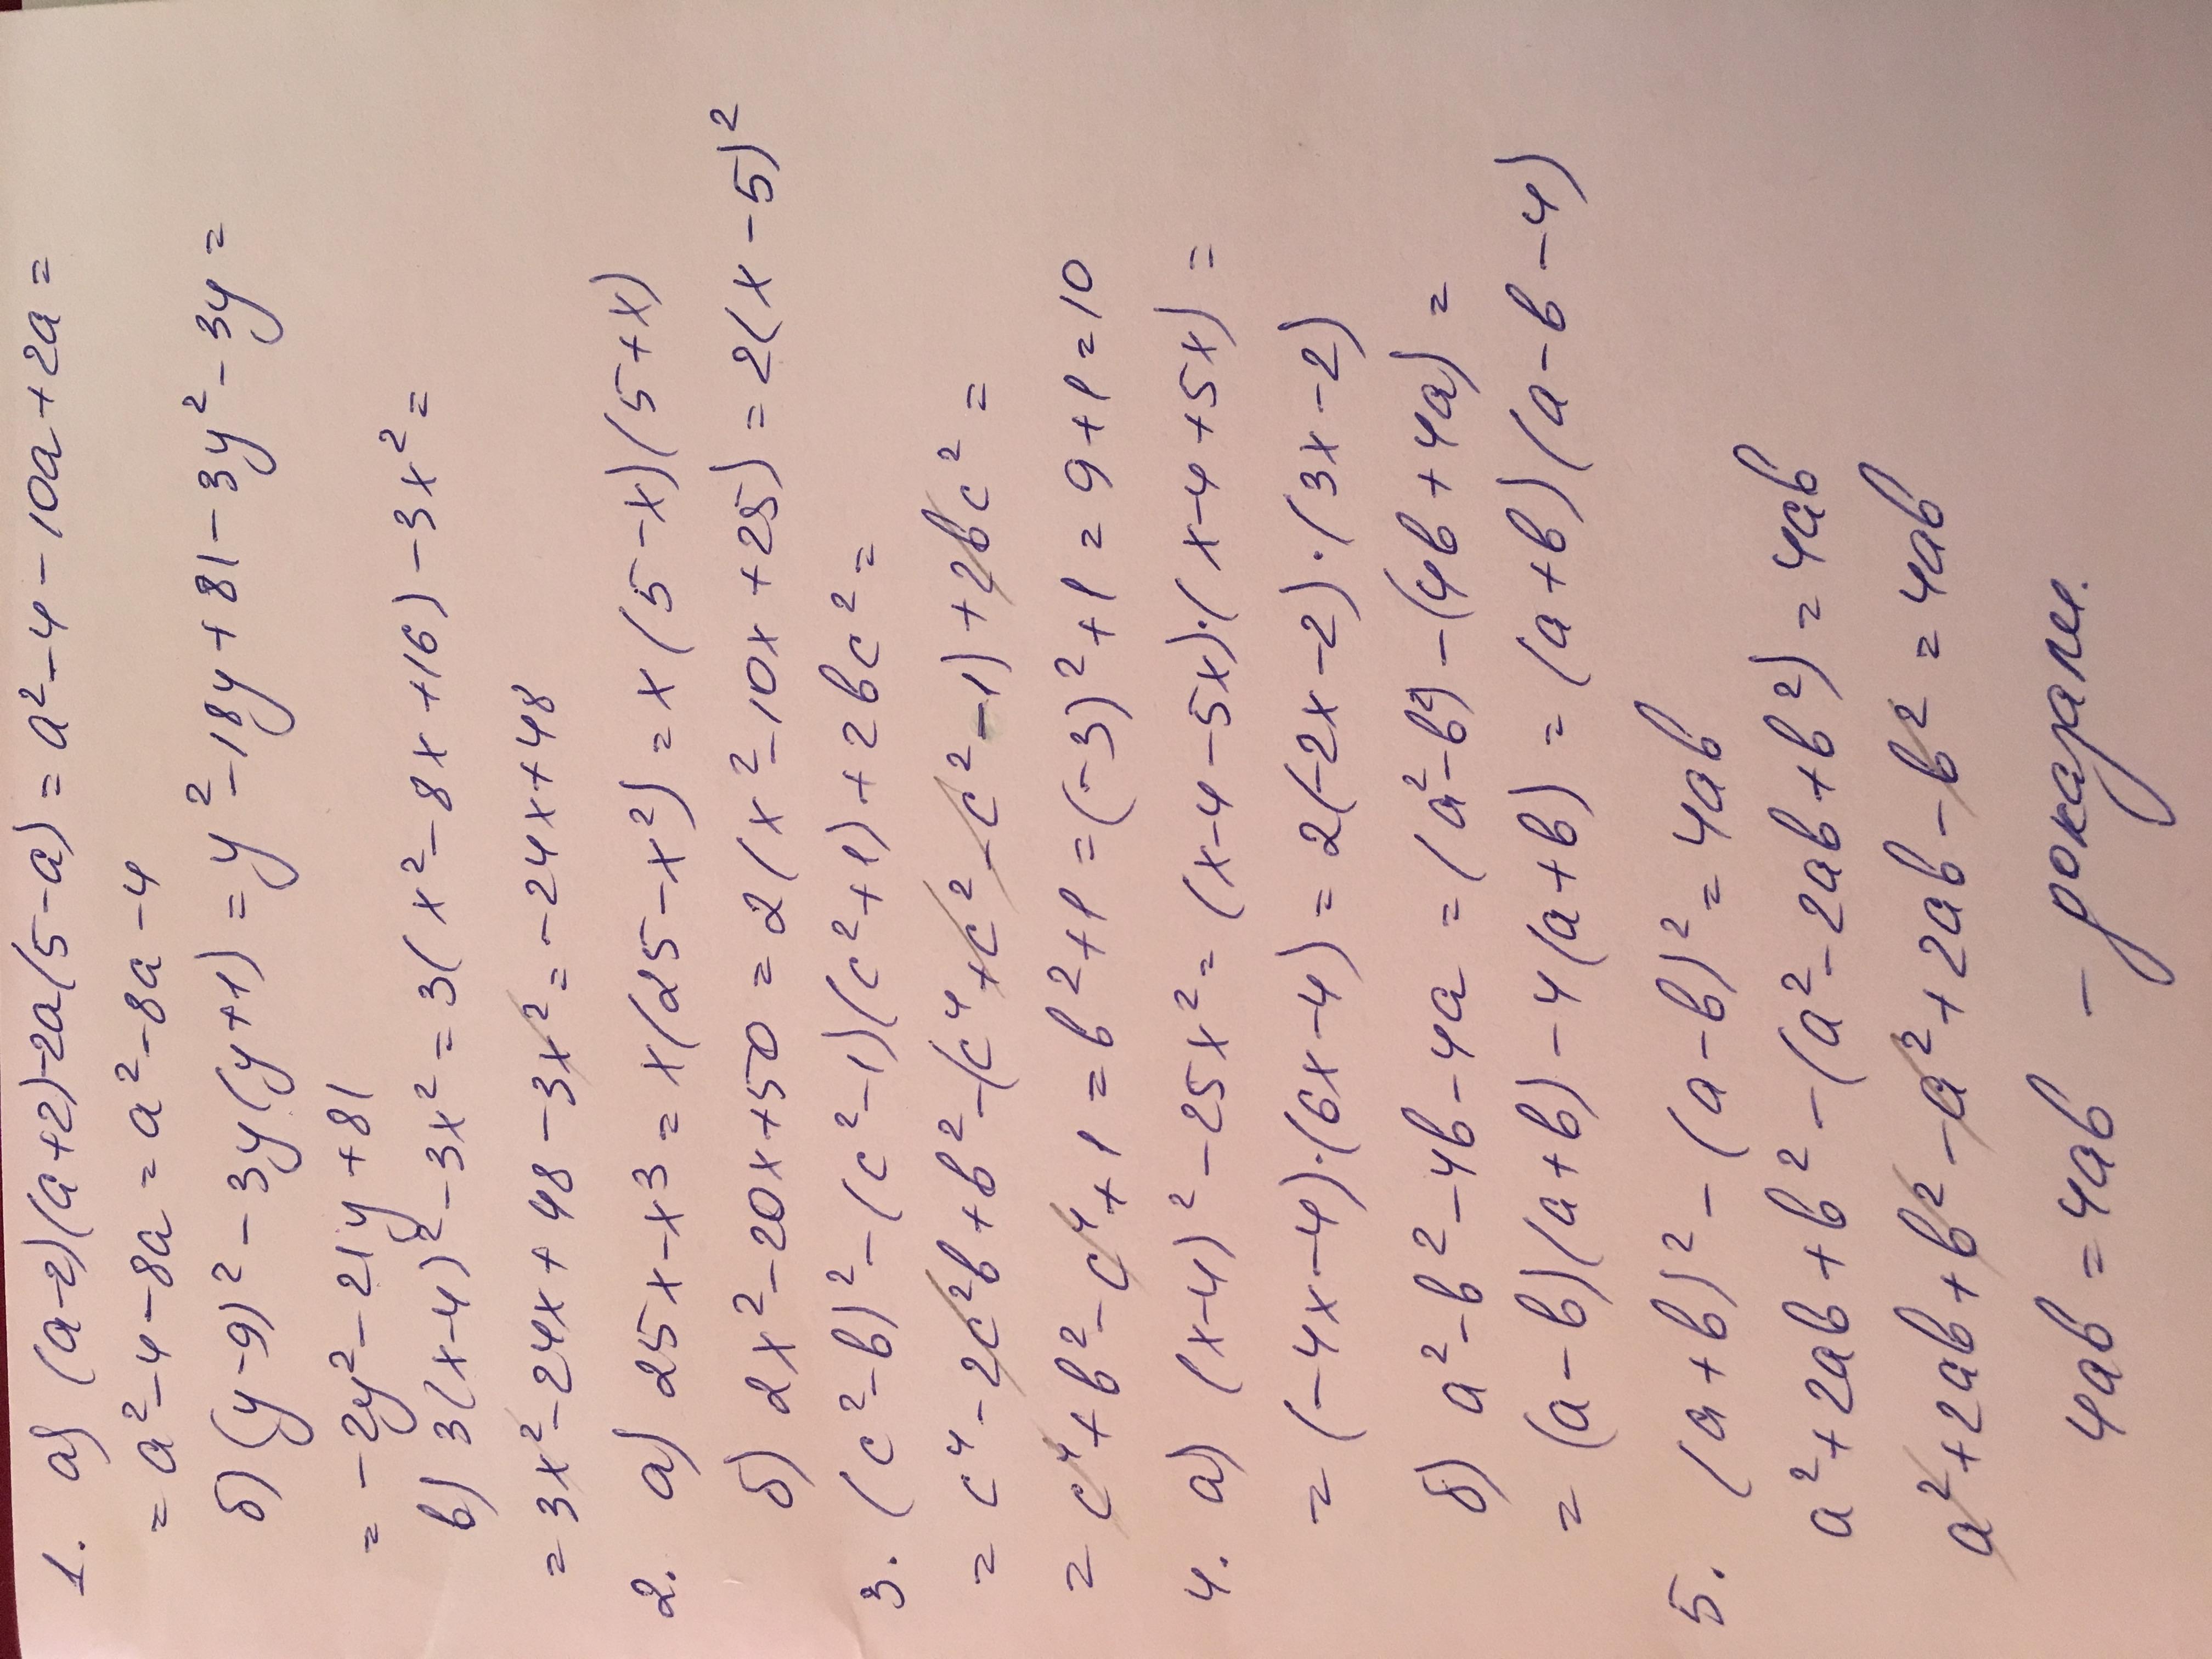 1. а) (a-2)(a+2)-2a(5-a) = a²-4-10a+2a =
= a²-4-8a = a²-8a-4
б) (y-9)²-3y(y+1) = y²-18y+81-3y²-3y =
= -2y²-21y+81
в) 3(x-4)²-3x² = 3(x²-8x+16)-3x² =
= 3x²-24x+48-3x² = -24x+48
2. а) 25x-x3 = x(25-x²) = x(5-x)(5+x)
б) 2x²-20x+50 = 2(x²-10x+25) = 2(x-5)²
3. (c²-b)²-(c²-1)(c²+1)+2bc² =
= c⁴-2c²b+b²-(c⁴+c²-c²-1)+2bc² =
= c⁴+b²-c⁴+1 = b²+1 = (-3)²+1 = 9+1 = 10
4. а) (x-4)²-25x² = (x-4-5x)·(x-4+5x) =
= (-4x-4)·(6x-4) = 2(-2x-2)·(3x-2)
б) a²-b²-4b-4a = (a²-b²)-(4b+4a) =
= (a-b)(a+b)-4(a+b) = (a+b)(a-b-4)
5. (a+b)²-(a-b)² = 4ab
a²+2ab+b²-(a²-2ab+b²) = 4ab
a²+2ab+b²-a²+2ab-b² = 4ab
4ab = 4ab - доказали.